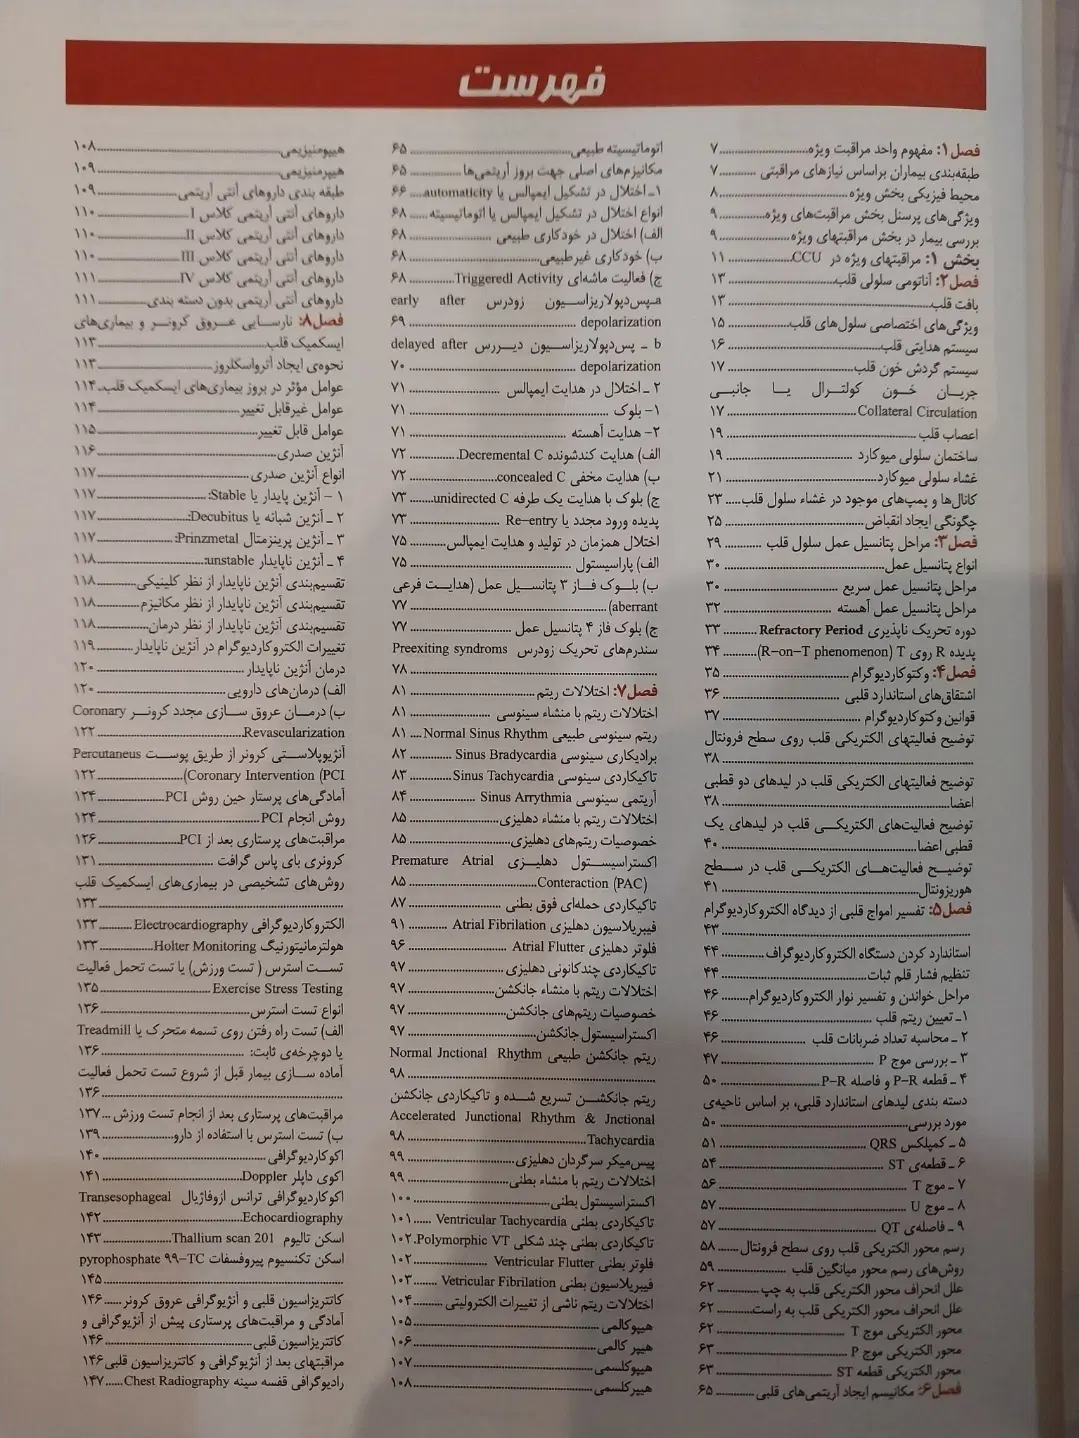 فهرست
فصل۱: مفهوم واحد مراقبت ویژه ۷
طبقه‌بندی بیماران براساس نیازهای مراقبتی ۷
محیط فیزیکی بخش ویژه ۸
ویژگی‌های پرسنل بخش مراقبت‌های ویژه ۹
بررسی بیمار در بخش مراقبتهای ویژه ۹
بخش ۱: مراقبتهای ویژه در CCU ۱۱
فصل۲: آناتومی سلولی قلب ۱۳
بافت قلب ۱۳
ویژگی‌های اختصاصی سلول‌های قلب ۱۵
سیستم هدایتی قلب ۱۶
سیستم گردش خون قلب ۱۷
جریان خون کولترال یا جانبی
Collateral Circulation ۱۷
اعصاب قلب ۱۹
ساختمان سلولی میوکارد ۱۹
غشاء سلولی میوکارد ۲۱
کانال‌ها و پمپ‌های موجود در غشاء سلول قلب ۲۳
چگونگی ایجاد انقباض ۲۵
فصل۳: مراحل پتانسیل عمل سلول قلب ۲۹
انواع پتانسیل عمل ۳۰
مراحل پتانسیل عمل سریع ۳۰
مراحل پتانسیل عمل آهسته ۳۲
دوره تحریک ناپذیری Refractory Period ۳۳
پدیده R روی T (R-on-T phenomenon) ۳۴
فصل۴: وکتوکاردیوگرام ۳۵
اشتقاق‌های استاندارد قلبی ۳۶
قوانین وکتوکاردیوگرام ۳۷
توضیح فعالیتهای الکتریکی قلب روی سطح فرونتال
۳۸
توضیح فعالیتهای الکتریکی قلب در لیدهای دو قطبی
اعضا ۳۸
توضیح فعالیت‌های الکتریکی قلب در لیدهای یک
قطبی اعضا ۴۰
توضیح فعالیت‌های الکتریکی قلب در سطح
هوریزونتال ۴۱
فصل۵: تفسیر امواج قلبی از دیدگاه الکتروکاردیوگرام
۴۳
استاندارد کردن دستگاه الکتروکاردیوگراف ۴۴
تنظیم فشار قلم ثبات ۴۴
مراحل خواندن و تفسیر نوار الکتروکاردیوگرام ۴۶
۱ـ تعیین ریتم قلب ۴۶
۲ ـ محاسبه تعداد ضربانات قلب ۴۶
۳ ـ بررسی موج P ۴۷
۴ ـ قطعه P-R و فاصله P-R ۵۰
دسته بندی لیدهای استاندارد قلبی، بر اساس ناحیه‌ی
مورد بررسی ۵۰
۵ ـ کمپلکس QRS ۵۱
۶ ـ قطعه‌ی ST ۵۴
۷ ـ موج T ۵۶
۸ ـ موج U ۵۷
۹ ـ فاصله‌ی QT ۵۷
رسم محور الکتریکی قلب روی سطح فرونتال ۵۸
روش‌های رسم محور میانگین قلب ۵۹
علل انحراف محور الکتریکی قلب به چپ ۶۲
علل انحراف محور الکتریکی قلب به راست ۶۲
محور الکتریکی موج T ۶۲
محور الکتریکی موج P ۶۳
محور الکتریکی قطعه ST ۶۳
فصل۶: مکانیسم ایجاد آریتمی‌های قلبی ۶۵
اتوماتیسیته طبیعی ۶۵
مکانیزم‌های اصلی جهت بروز آریتمی‌ها ۶۵
۱ـ اختلال در تشکیل ایمپالس یا automaticity ۶۶
انواع اختلال در تشکیل ایمپالس یا اتوماتیسیته ۶۸
الف) اختلال در خودکاری طبیعی ۶۸
ب) خودکاری غیرطبیعی ۶۸
ج) فعالیت ماشه‌ای Triggeredl Activity ۶۸
a ـ پس‌دپولاریزاسیون زودرس early after
depolarization ۶۹
b ـ پس‌دپولاریزاسیون دیررس delayed after
depolarization ۷۰
۲ ـ اختلال در هدایت ایمپالس ۷۱
۱- بلوک ۷۱
۲- هدایت آهسته ۷۱
الف) هدایت کندشونده Decremental C. ۷۲
ب) هدایت مخفی concealed C. ۷۲
ج) بلوک با هدایت یک طرفه unidirected C ۷۳
پدیده ورود مجدد یا Re-entry ۷۳
اختلال همزمان در تولید و هدایت ایمپالس ۷۵
الف) پاراسیستول ۷۵
ب) بلوک فاز ۳ پتانسیل عمل (هدایت فرعی
aberrant) ۷۷
ج) بلوک فاز ۴ پتانسیل عمل ۷۷
سندرم‌های تحریک زودرس Preexiting syndroms
۷۸
فصل۷: اختلالات ریتم ۸۱
اختلالات ریتم با منشاء سینوسی ۸۱
ریتم سینوسی طبیعی Normal Sinus Rhythm ۸۱
برادیکاری سینوسی Sinus Bradycardia ۸۲
تاکیکاردی سینوسی Sinus Tachycardia ۸۳
آریتمی سینوسی Sinus Arrythmia ۸۴
اختلالات ریتم با منشاء دهلیزی ۸۵
خصوصیات ریتم‌های دهلیزی ۸۵
اکستراسیستول دهلیزی Premature Atrial
Conteraction (PAC) ۸۵
تاکیکاردی حمله‌ای فوق بطنی ۸۷
فیبریلاسیون دهلیزی Atrial Fibrilation ۹۱
فلوتر دهلیزی Atrial Flutter ۹۶
تاکیکاردی چندکانونی دهلیزی ۹۷
اختلالات ریتم با منشاء جانکشن ۹۷
خصوصیات ریتم‌های جانکشن ۹۷
اکستراسیستول جانکشن ۹۷
ریتم جانکشن طبیعی Normal Jnctional Rhythm
۹۸
ریتم جانکشن تسریع شده و تاکیکاردی جانکشن
Accelerated Junctional Rhythm & Jnctional
Tachycardia ۹۸
پیس‌میکر سرگردان دهلیزی ۹۹
اختلالات ریتم با منشاء بطنی ۹۹
اکستراسیستول بطنی ۱۰۰
تاکیکاردی بطنی Ventricular Tachycardia ۱۰۱
تاکیکاردی بطنی چند شکلی Polymorphic VT. ۱۰۲
فلوتر بطنی Ventricular Flutter ۱۰۲
فیبریلاسیون بطنی Vetricular Fibrilation ۱۰۳
اختلالات ریتم ناشی از تغییرات الکترولیتی ۱۰۴
هیپوکالمی ۱۰۵
هیپر کالمی ۱۰۶
هیپوکلسمی ۱۰۷
هیپرکلسمی ۱۰۸
هیپومنیزیمی ۱۰۸
هیپرمنیزیمی ۱۰۹
طبقه بندی داروهای آنتی آریتمی ۱۰۹
داروهای آنتی آریتمی کلاس I ۱۱۰
داروهای آنتی آریتمی کلاس II ۱۱۰
داروهای آنتی آریتمی کلاس III ۱۱۰
داروهای آنتی آریتمی کلاس IV ۱۱۱
داروهای آنتی آریتمی بدون دسته بندی ۱۱۱
فصل۸: نارسایی عروق کرونر و بیماری‌های
ایسکمیک قلب ۱۱۳
نحوه‌ی ایجاد آترواسکلروز ۱۱۳
عوامل مؤثر در بروز بیماری‌های ایسکمیک قلب ۱۱۴
عوامل غیرقابل تغییر ۱۱۴
عوامل قابل تغییر ۱۱۵
آنژین صدری ۱۱۶
انواع آنژین صدری ۱۱۷
۱ - آنژین پایدار یا Stable: ۱۱۷
۲ ـ آنژین شبانه یا Decubitus: ۱۱۷
۳ ـ آنژین پرینزمتال Prinzmetal: ۱۱۷
۴ ـ آنژین ناپایدار unstable: ۱۱۸
تقسیم‌بندی آنژین ناپایدار از نظر کلینیکی ۱۱۸
تقسیم‌بندی آنژین ناپایدار از نظر مکانیزم ۱۱۸
تقسیم‌بندی آنژین ناپایدار از نظر درمان ۱۱۸
تغییرات الکتروکاردیوگرام در آنژین ناپایدار ۱۱۹
درمان آنژین ناپایدار ۱۲۰
الف) درمان‌های دارویی ۱۲۰
ب) درمان عروق سازی مجدد کرونر Coronary
Revascularization ۱۲۲
آنژیوپلاستی کرونر از طریق پوست Percutaneus
Coronary Intervention (PCI) ۱۲۲
آمادگی‌های پرستار حین روش PCI ۱۲۴
روش انجام PCI ۱۲۴
مراقبت‌های پرستاری بعد از PCI ۱۲۶
کرونری بای پاس گرافت ۱۳۱
روش‌های تشخیصی در بیماری‌های ایسکمیک قلب
۱۳۳
الکتروکاردیوگرافی Electrocardiography ۱۳۳
هولترمانیتورنیگ Holter Monitoring ۱۳۳
تست استرس ( تست ورزش) یا تست تحمل فعالیت
Exercise Stress Testing ۱۳۵
انواع تست استرس ۱۳۶
الف) تست راه رفتن روی تسمه متحرک یا Treadmill
یا دوچرخه‌ی ثابت: ۱۳۶
آماده سازی بیمار قبل از شروع تست تحمل فعالیت
۱۳۶
مراقبت‌های پرستاری بعد از انجام تست ورزش ۱۳۷
ب) تست استرس با استفاده از دارو ۱۳۹
اکوکاردیوگرافی ۱۴۰
اکوی داپلر Doppler ۱۴۱
اکوکاردیوگرافی ترانس ازوفاژیال Transesophageal
Echocardiography ۱۴۲
اسکن تالیوم Thallium scan 201 ۱۴۳
اسکن تکنسیوم پیروفسفات pyrophosphate ۹۹-TC
۱۴۵
کاتتریزاسیون قلبی و آنژیوگرافی عروق کرونر ۱۴۶
آمادگی و مراقبت‌های پرستاری پیش از آنژیوگرافی و
کاتتریزاسیون قلبی ۱۴۶
مراقبتهای بعد از آنژیوگرافی و کاتتریزاسیون قلبی ۱۴۶
رادیوگرافی قفسه سینه Chest Radiography ۱۴۷